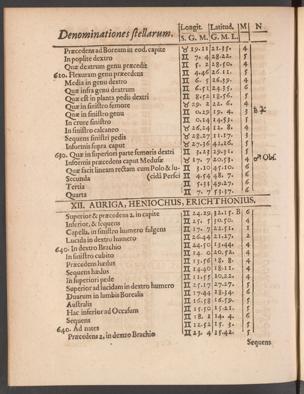 Denominationes stellarum. Longit. Latitud. M N
S. G. M. G. M. L.
Præcedens ad Boream in eod. capite ♉ 29.11 21.35. 4
In poplite dextro ♊ 7. 4 28.22. 5
Quæ dextrum genu præcedit ♊ 5. 2 28.50. 4
610. Flexuram genu præcedens ♊ 4.46 26.11. 5
Media in genu dextro ♊ 6. 5 26.39. 4
Quæ infra genu dextrum ♊ 6.51 24.35. 6
Quæ est in planta pedis dextri ♊ 8.52 18.56. 5
Quæ in sinistro femore ♉ 29. 2 22. 6. 4
Quæ in sinistro genu ♊ 0.29 19. 4. 3
In crure sinistro ♊ 0.14 14.53. 5
In sinistro calcaneo ♉ 26.24 12. 8. 4
Sequens sinistri pedis ♉ 28.27 11.17. 3
Informis supra caput ♉ 27.36 42.26. 5
Quæ in superiori parte femoris dextri ♊ 5.23 29.31. 5
Informis præcedens caput Medusæ ♉ 17. 7 20.55. 4 ♂ Obs.
Quæ facit lineam rectam cum Polo & lu- ♊ 3.10 45.10. 6
Secunda (cidi Persei ♊ 4.54 48. 7. 6
Tertia ♊ 5.31 49.27. 6
Quarta ♊ 7. 7 53.37. 6
XII. AURIGA, HENIOCHUS, ERICHTHONIUS,
Superior è præcedens 2. in capite ♊ 24.29 32.15. B 6
Inferior, & sequens ♊ 25. 1 30.50. 4
Capella, in sinistro humero fulgens ♊ 17. 7 22.51. 1
Lucida in dextro humero ♊ 26.44 21.27. 2
640. In dextro Brachio ♊ 24.50 13.44. 4
In sinistro cubito ♊ 14. 0 20.52. 4
Præcedens hædus ♊ 13.56 18. 8. 4
Sequens hædus ♊ 14.40 18.11. 4
In superiori pede ♊ 11.55 10.22. 4
Superior ad lucidam in dextro humero ♊ 25.17 27.27. 5
Duarum in lumbis Borealis ♊ 17.44 28.34. 6
Australis ♊ 16.58 16.59. 5
Hac inferior ad Occasum ♊ 15.50 15.21. 5
Sequens ♊ 18. 1 14. 4. 6
Ad nates ♊ 12.52 15. 3. 5
Præcedens 2. in dextro Brachio ♊ 23. 4 15.42. 5
Sequens